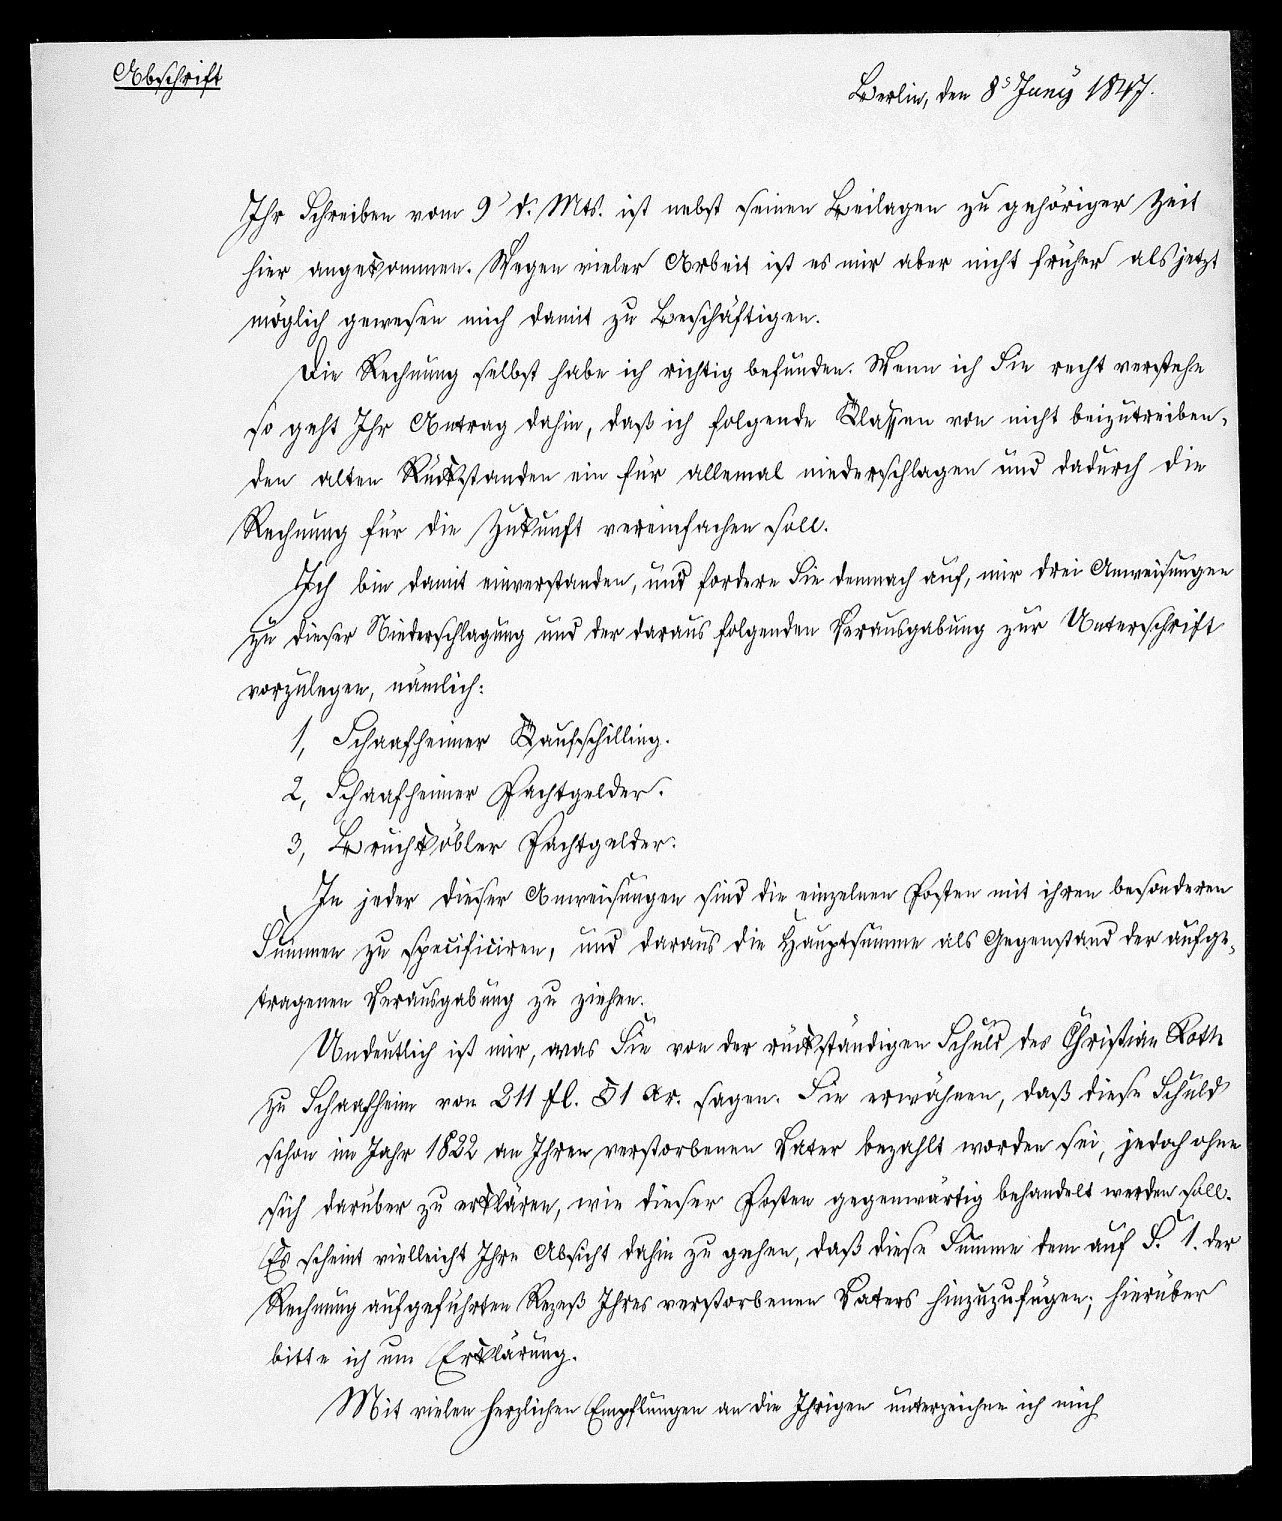 Abschrift
Berlin, den 8ˢ Juny 1847.
Ihr Schreiben vom 9ˢ d. Mts. ist nebst seinen Beilagen zu gehöriger Zeit
hier angekommen. Wegen vieler Arbeit ist es mir aber nicht früher als jetzt
möglich gewesen mich damit zu Beschäftigen.
Die Rechnung selbst habe ich richtig befunden. Wenn ich Sie recht verstehe
so geht Ihr Antrag dahin, daß ich folgende Klassen von nicht beizutreiben-
den alten Rückstanden ein für allemal niederschlagen und dadurch die
Rechnung für die Zukunft vereinfachen soll.
Ich bin damit einverstanden, und fordere Sie demnach auf, mir drei Anweisungen
zu dieser Niederschlagung und der daraus folgenden Verausgabung zur Unterschrift
vorzulegen, nämlich:
1, Schaafheimer Kaufschilling.
2, Schaafheimer Pachtgelder.
3, Bruchköbler Pachtgelder.
In jeder dieser Anweisungen sind die einzelnen Posten mit ihren besonderen
Summen zu specificiren, und daraus die Hauptsumme als Gegenstand der aufge-
tragenen Verausgabung zu ziehen.
Undeutlich ist mir, was Sie von der rückständigen Schuld des Christian Roth
zu Schaafheim von 211 fl. 51 xr. sagen. Sie erwähnen, daß diese Schuld
schon im Jahr 1822 an Ihren verstorbenen Vater bezahlt worden sei, jedoch ohne
sich darüber zu erklären, wie dieser Posten gegenwärtig behandelt werden soll.
Es scheint vielleicht Ihre Absicht dahin zu gehen, daß diese Summe dem auf S. 1. der
Rechnung aufgeführten Rezeß Ihres verstorbenen Vaters hinzuzufügen; hierüber
bitte ich um Erklärung.
Mit vielen herzlichen Empflungen an die Ihrigen unterzeichne ich mich